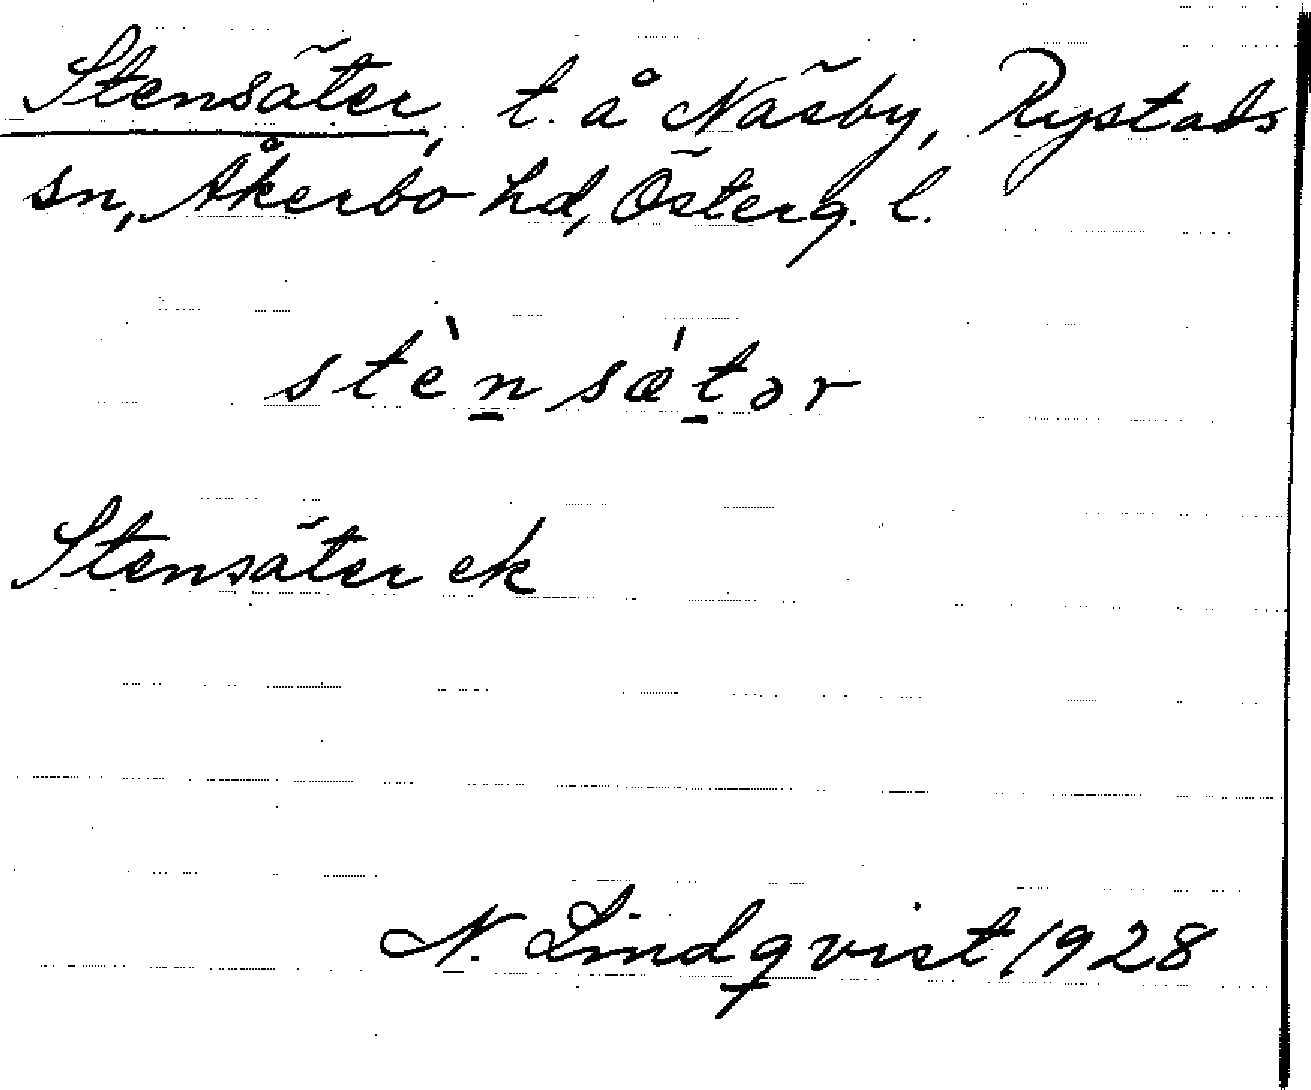 Stensäter, t. å Näsby, Rystads
sn, Åkerbo hd, Österg. l.
stènsǽtər
Stensäter ek
N. Lindqvist 1928